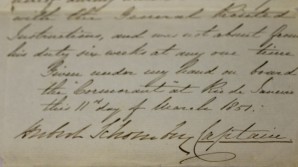 with the General Printed
Instructions, and was not absent from
his duty six weeks at any one time
Given under my hand on board
the Cormorant at Rio de Janeiro
this 11th day of March 1851.
Herbert Schomberg Captain